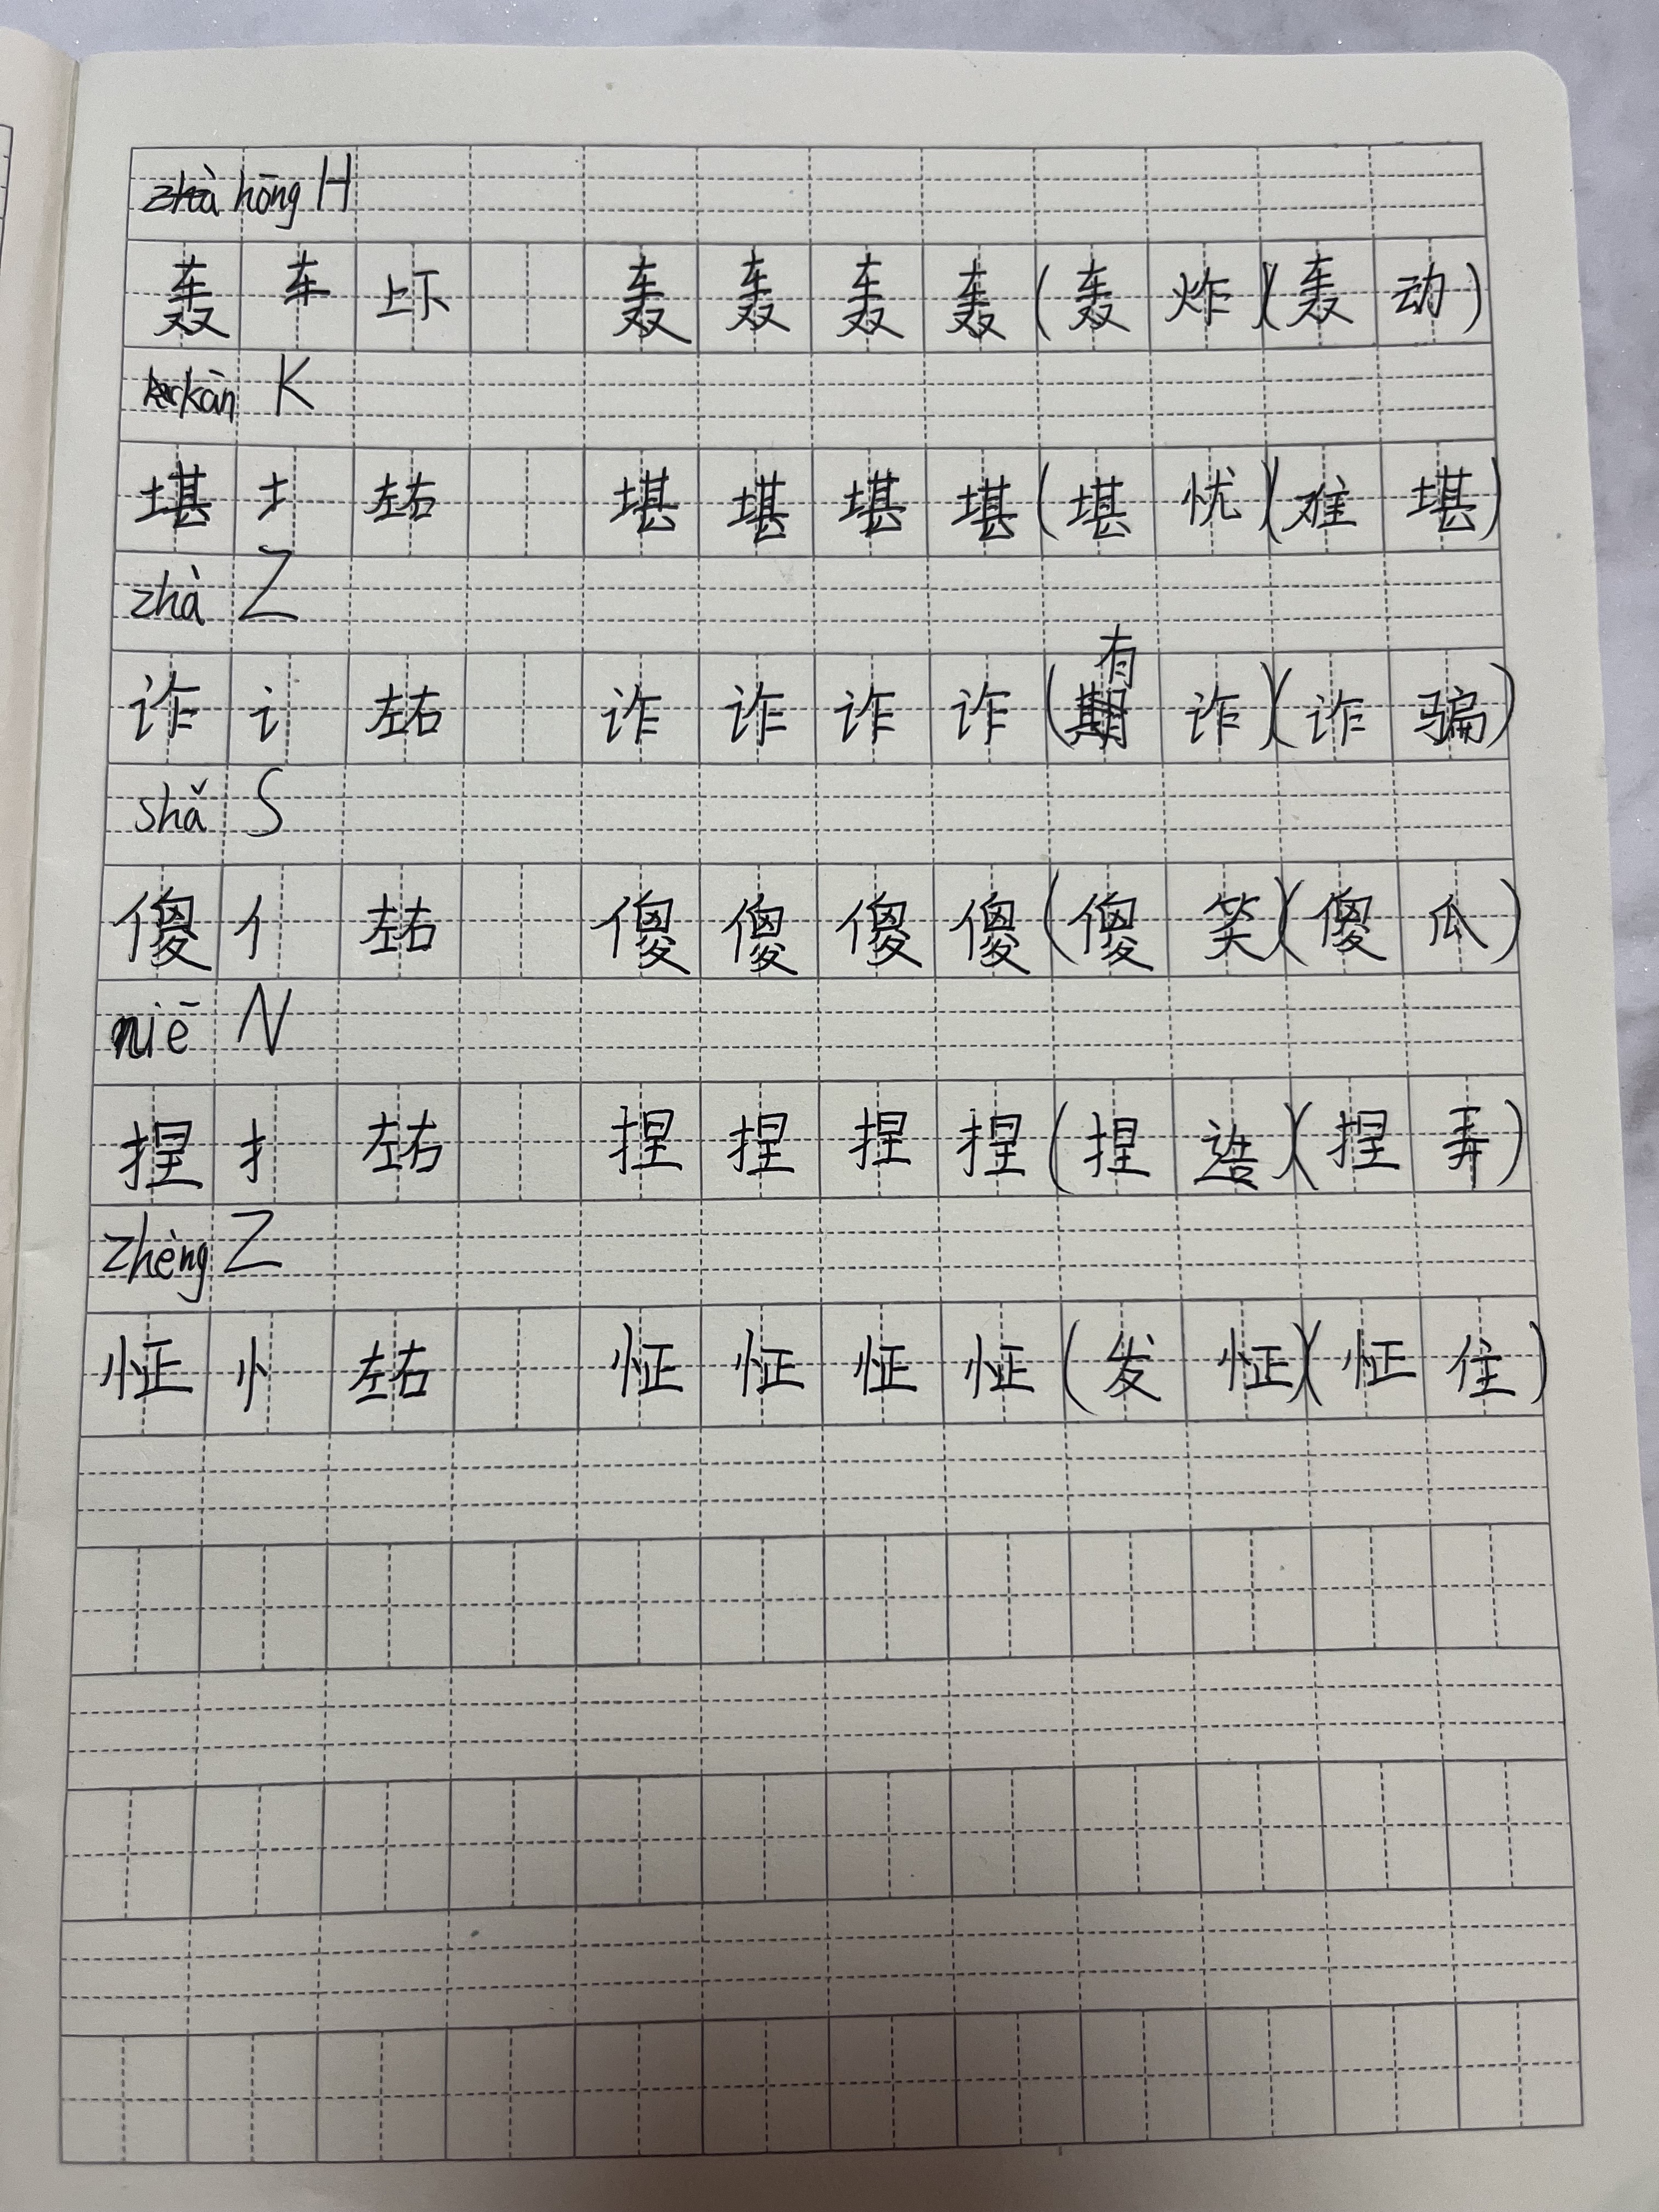 hōng H
轰 车 上下 轰 轰 轰 轰 (轰 炸)(轰 动)
kàn K
堪 土 左右 堪 堪 堪 堪 (堪 忧)(难 堪)
zhà Z
诈 讠 左右 诈 诈 诈 诈 (有 诈)(诈 骗)
shǎ S
傻 亻 左右 傻 傻 傻 傻 (傻 笑)(傻 瓜)
niē N
捏 扌 左右 捏 捏 捏 捏 (捏 造)(捏 弄)
zhèng Z
怔 忄 左右 怔 怔 怔 怔 (发 怔)(怔 住)